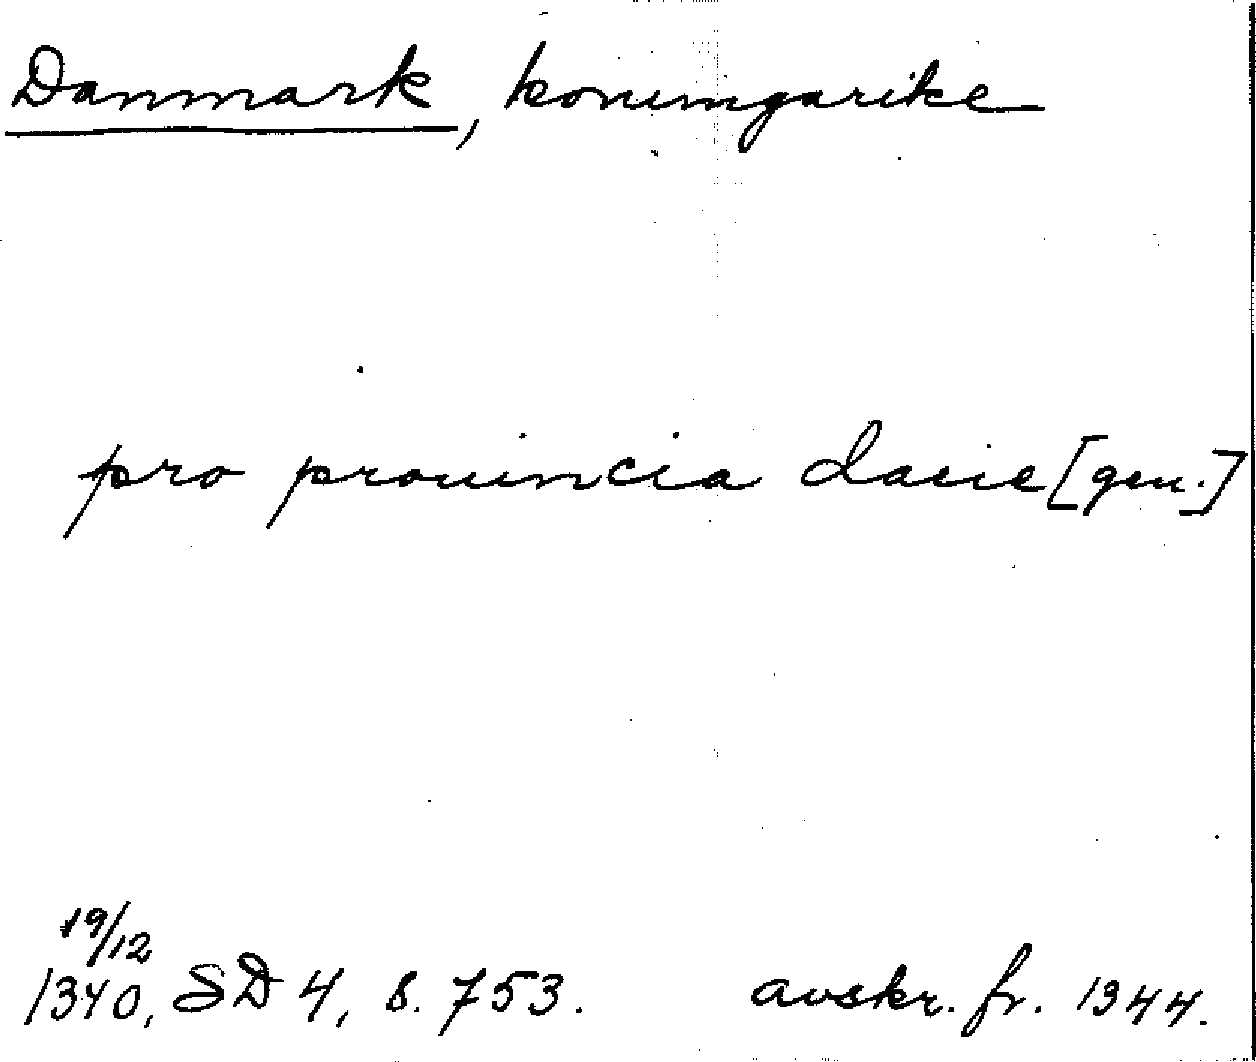 Danmark, konungarike
pro prouincia dacie [gen.]
19/12
1340, SD 4, s. 753. avskr. fr. 1344.